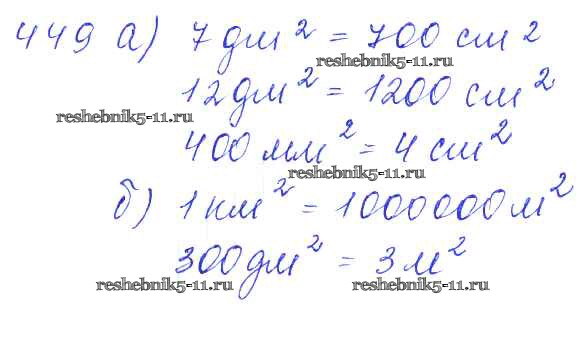 449 а) 7 дм² = 700 см²
reshebnik5-11.ru
12 дм² = 1200 см²
reshebnik5-11.ru
400 мм² = 4 см²
reshebnik5-11.ru
б) 1 км² = 1000000 м²
300 дм² = 3 м²
reshebnik5-11.ru reshebnik5-11.ru